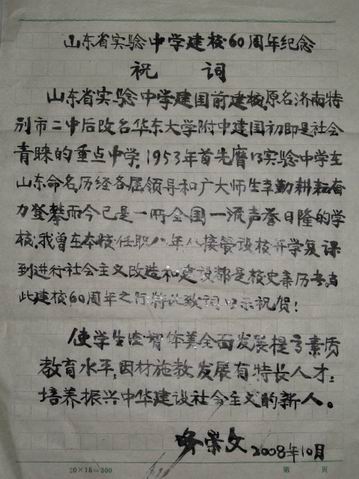 山东省实验中学建校60周年纪念
祝 词
山东省实验中学建国前建校原名济南特
别市二中后改名华东大学附中建国初即是社会
青睐的重点中学1953年首先膺以实验中学在
山东命名历经各届领导和广大师生辛勤耕耘奋
力登攀而今已是一所全国一流声誉日隆的学
校,我曾在本校任职八年从接管该校开学复课
到进行社会主义改造和建设都是校史亲历者当
此建校60周年之际特此致词以示祝贺!
使学生德智体美全面发展提高素质
教育水平,因材施教发展有特长人才,
培养振兴中华建设社会主义的新人。
崇文
2008年10月
20×15=300
第 页